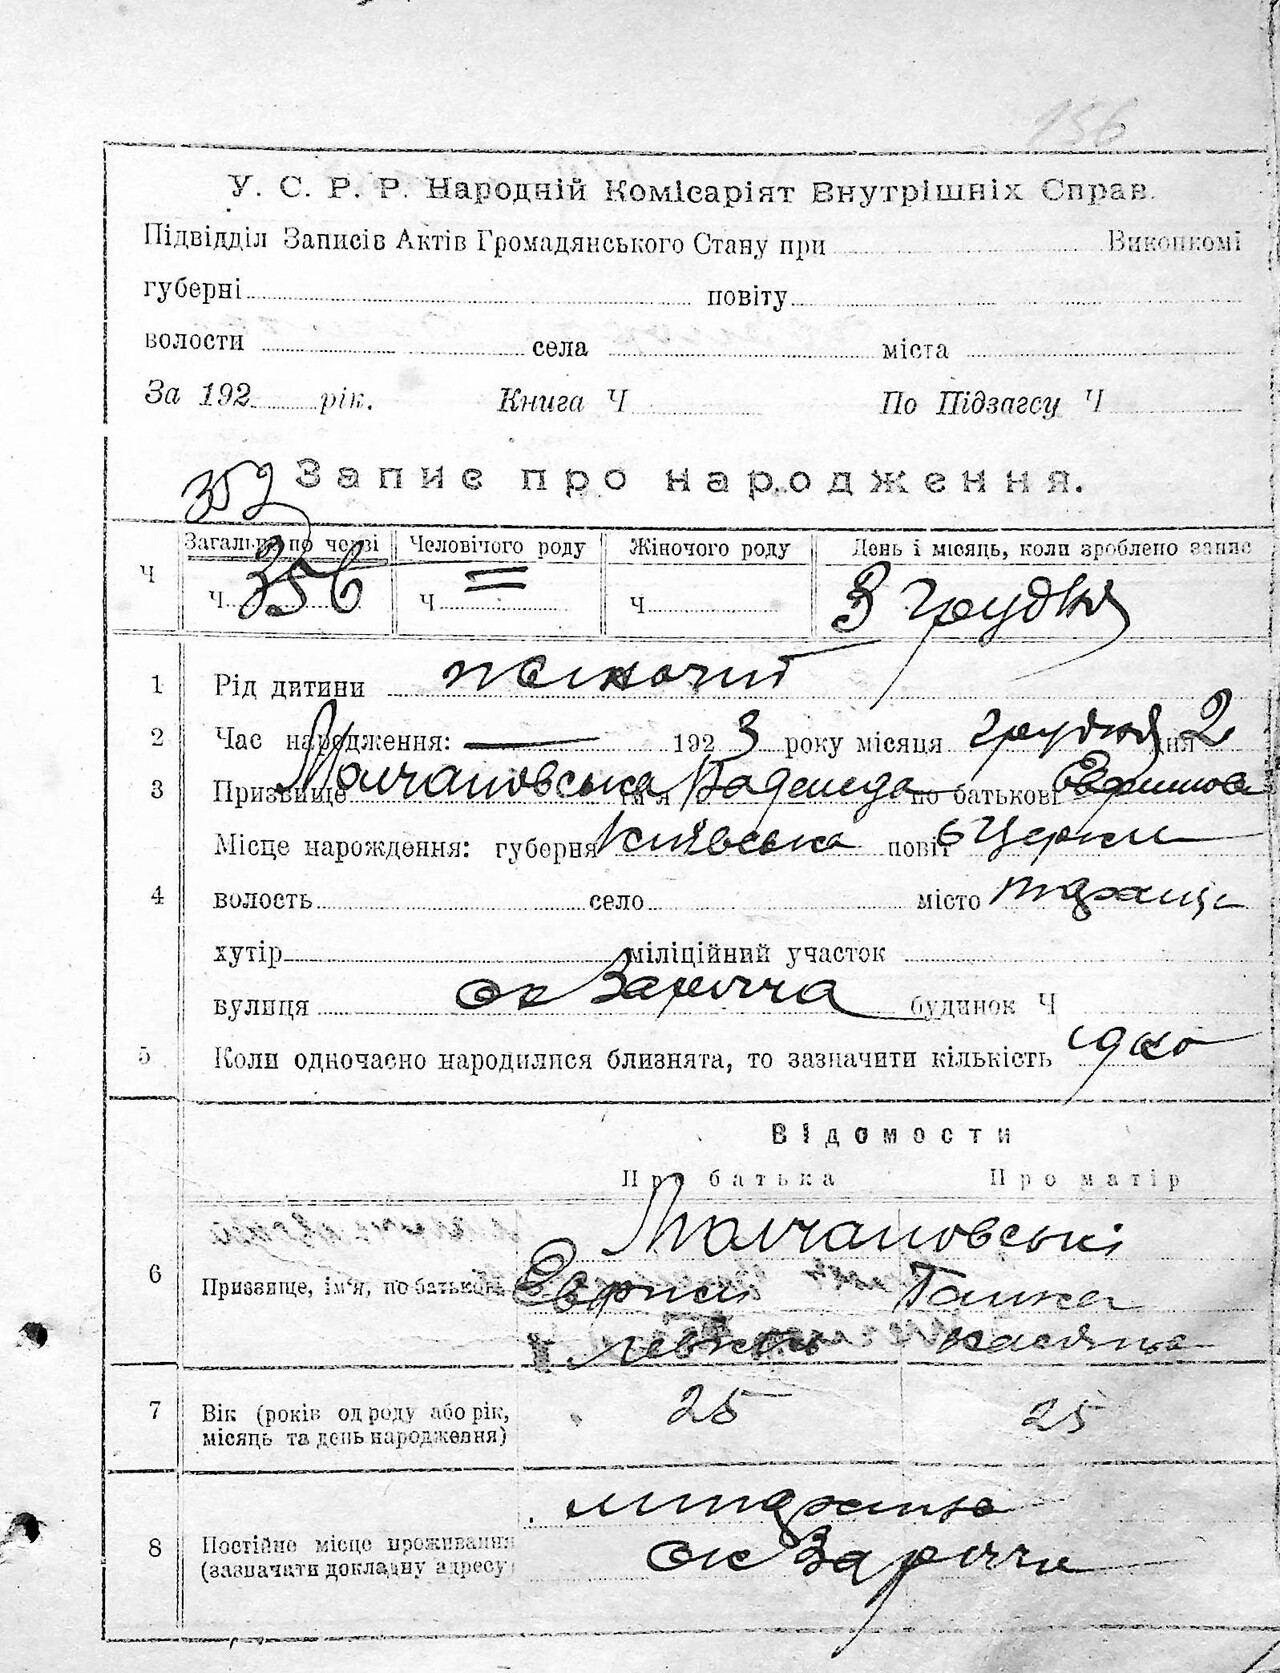 156
У. С. Р. Р. Народній Комісаріят Внутрішніх Справ.
Підвідділ Записів Актів Громадянського Стану при Виконкомі
губерні повіту
волости села міста
За 192 рік. Книга Ч По Підзагсу Ч
Запис про народження.
Загальн по черзі Человічого роду Жіночого роду День і місяць, коли зроблено запис
Ч Ч 356 Ч = Ч 3 грудня
1 Рід дитини жіночий
2 Час народження: — 1923 року місяця грудня дня 2
3 Призвище Молчановська Ім'я Надежда по батькові
Місце народження: губерня Київська повіт Б Церкви
4 волость село місто
хутір міліційний участок
вулиця ок Заріччя будинок Ч
5 Коли одночасно народилися близнята, то зазначити кількість одно
Відомости
Про батька Про матір
Молчановські
6 Призвище, ім'я, по батькові Ганка
7 Вік (років од роду або рік, 25 25
місяць та день народження)
8 Постійне місце проживання
(зазначати докладну адресу) ок Заріччя